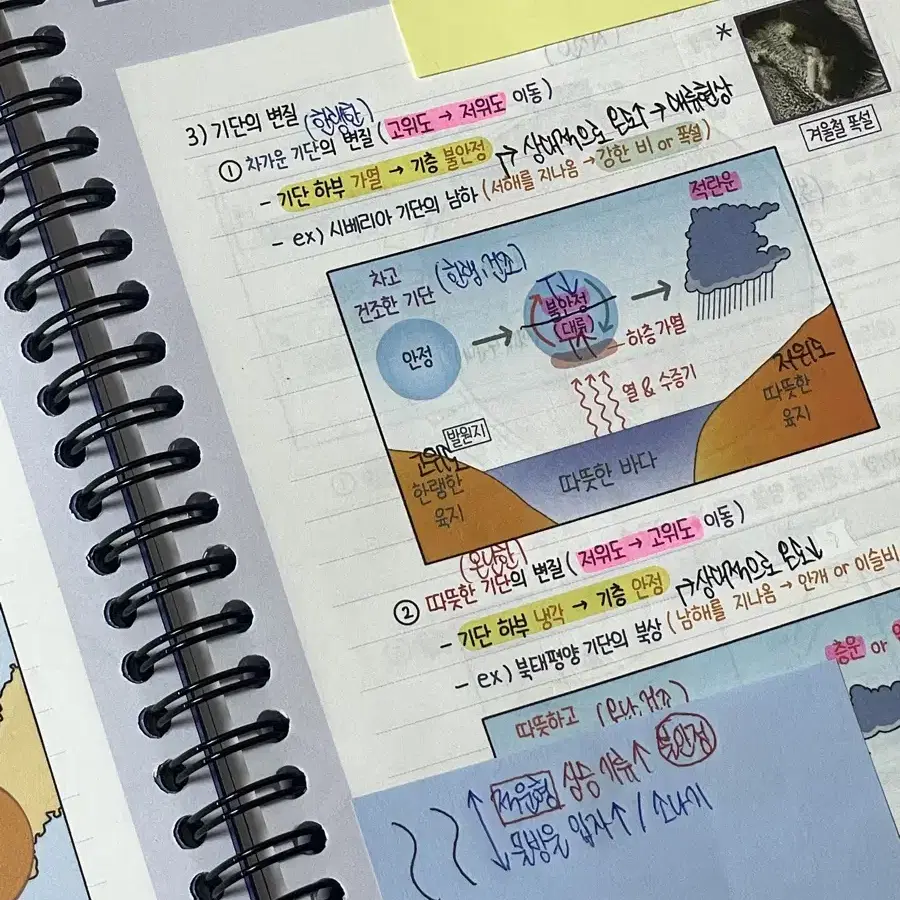 *
겨울철 폭설
3) 기단의 변질
(한랭한)
① 차가운 기단의 변질 (고위도 → 저위도 이동)
- 기단 하부 가열 → 기층 불안정 → 상대적으로 온도↑ → 대류현상
- ex) 시베리아 기단의 남하 (서해를 지나옴 → 강한 비 or 폭설)
적란운
차고 (한랭, 건조)
건조한 기단
안정
불안정
(대류)
하층 가열
열 & 수증기
발원지
고위도
한랭한
육지
따뜻한 바다
저위도
따뜻한
육지
(온난한)
② 따뜻한 기단의 변질 (저위도 → 고위도 이동)
- 기단 하부 냉각 → 기층 안정 → 상대적으로 온도↓
- ex) 북태평양 기단의 북상 (남해를 지나옴 → 안개 or 이슬비
층운 or
따뜻하고 (온난, 건조)
적운형 상승 기류↑ 불안정
물방울 입자↑ / 소나기